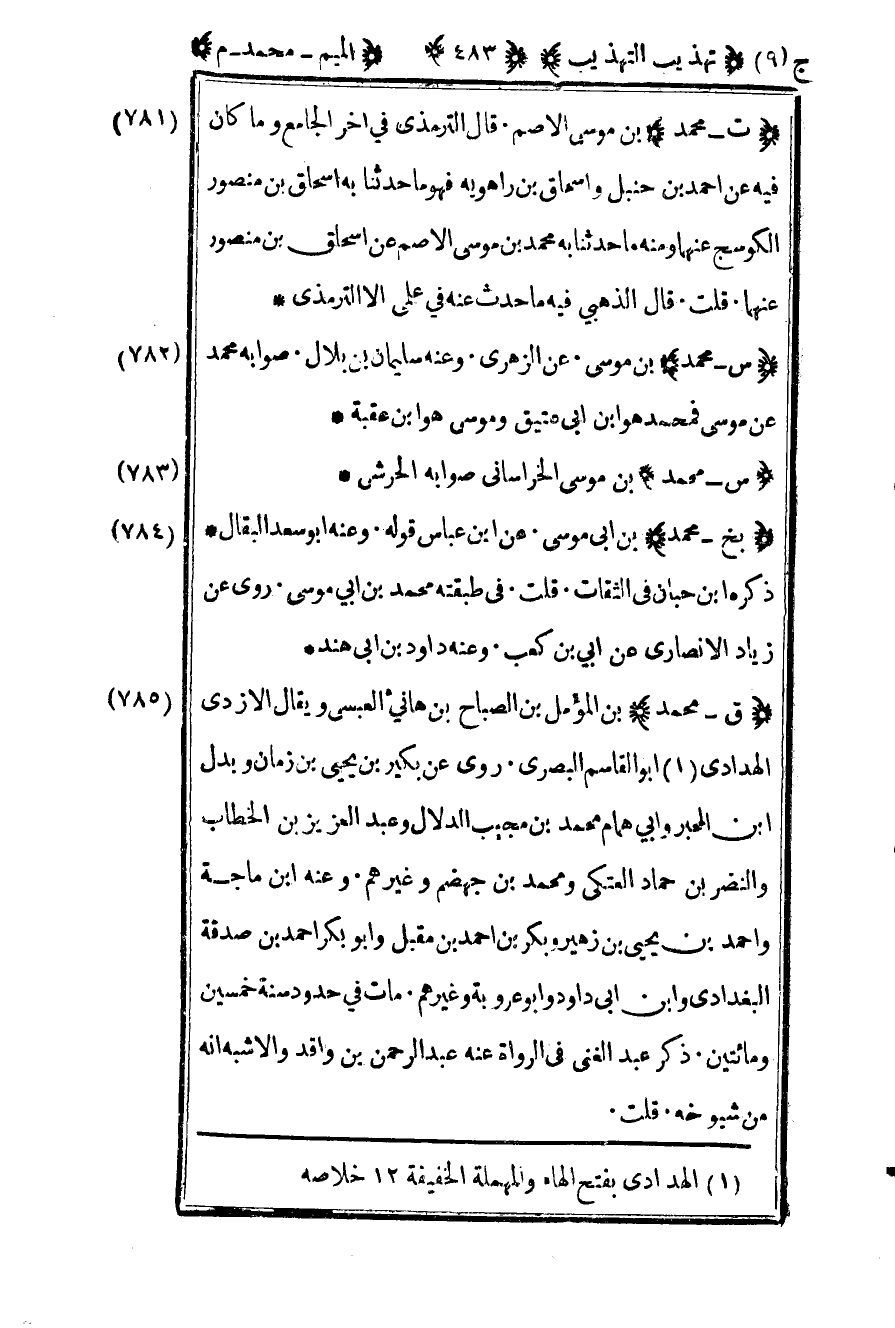 ج (٩) ﴿ تهذيب التهذيب ﴾ ﴿ ٤٨٣ ﴾ ﴿ الميم - محمد - م ﴾
﴿ ت - محمد ﴾ بن موسى الاصم · قال الترمذى في اخر الجامع و ما كان (٧٨١)
فيه عن احمد بن حنبل و اسحاق بن راهويه فهو ما حدثنا به اسحاق بن منصور
الكوسج عنهما ومنه ما حدثنا به محمد بن موسى الاصم عن اسحاق بن منصور
عنهما · قلت · قال الذهبي فيه ما حدث عنه في علمى الا الترمذى *
﴿ س - محمد ﴾ بن موسى · عن الزهرى · وعنه سليمان بن بلال · صوابه محمد (٧٨٢)
عن موسى فمحمد هو ابن ابى عتيق وموسى هو ابن عقبة *
﴿ س - محمد ﴾ بن موسى الخراسانى صوابه الحرشى * (٧٨٣)
﴿ بخ - محمد ﴾ بن ابى موسى · عن ابن عباس قوله · وعنه ابو سعد البقال * (٧٨٤)
ذكره ابن حبان فى الثقات · قلت · فى طبقته محمد بن ابي موسى · روى عن
زياد الانصارى عن ابي بن كعب · وعنه داود بن ابى هند *
﴿ ق - محمد ﴾ بن المؤمل بن الصباح بن هاني العبسى و يقال الازدى (٧٨٥)
الهدادى (١) ابو القاسم البصرى · روى عن بكير بن يحيى بن زمان و بدل
ابن المحبر وابي همام محمد بن مجيب الدلال وعبد العزيز بن الخطاب
والنضر بن حماد العتكى ومحمد بن جهضم و غيرهم · و عنه ابن ماجة
واحمد بن يحيى بن زهير وبكر بن احمد بن مقبل وابو بكر احمد بن صدقة
البغدادى وابن ابى داود وابو عروبة وغيرهم · مات في حدود سنة خمسين
ومائتين · ذكر عبد الغنى فى الرواة عنه عبد الرحمن بن واقد والاشبه انه
من شيوخه · قلت ·
(١) الهدادى بفتح الهاء والمهملة الخفيفة ١٢ خلاصه